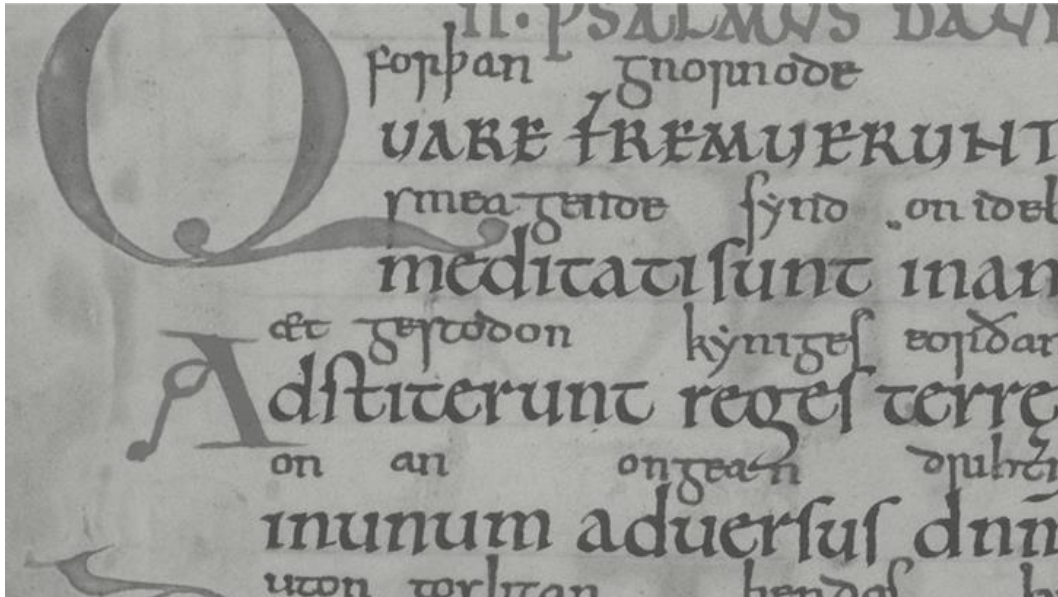 II· PSALMUS DAUI
forþan gnornode
QUARE FREMUERUNT
smeagende sẏnd on idel
meditati sunt inan
æt gestodon kẏniges eorðan
Adstiterunt reges terrę
on an ongean driht
inunum aduersus dnm̄
uton toslitan bendas